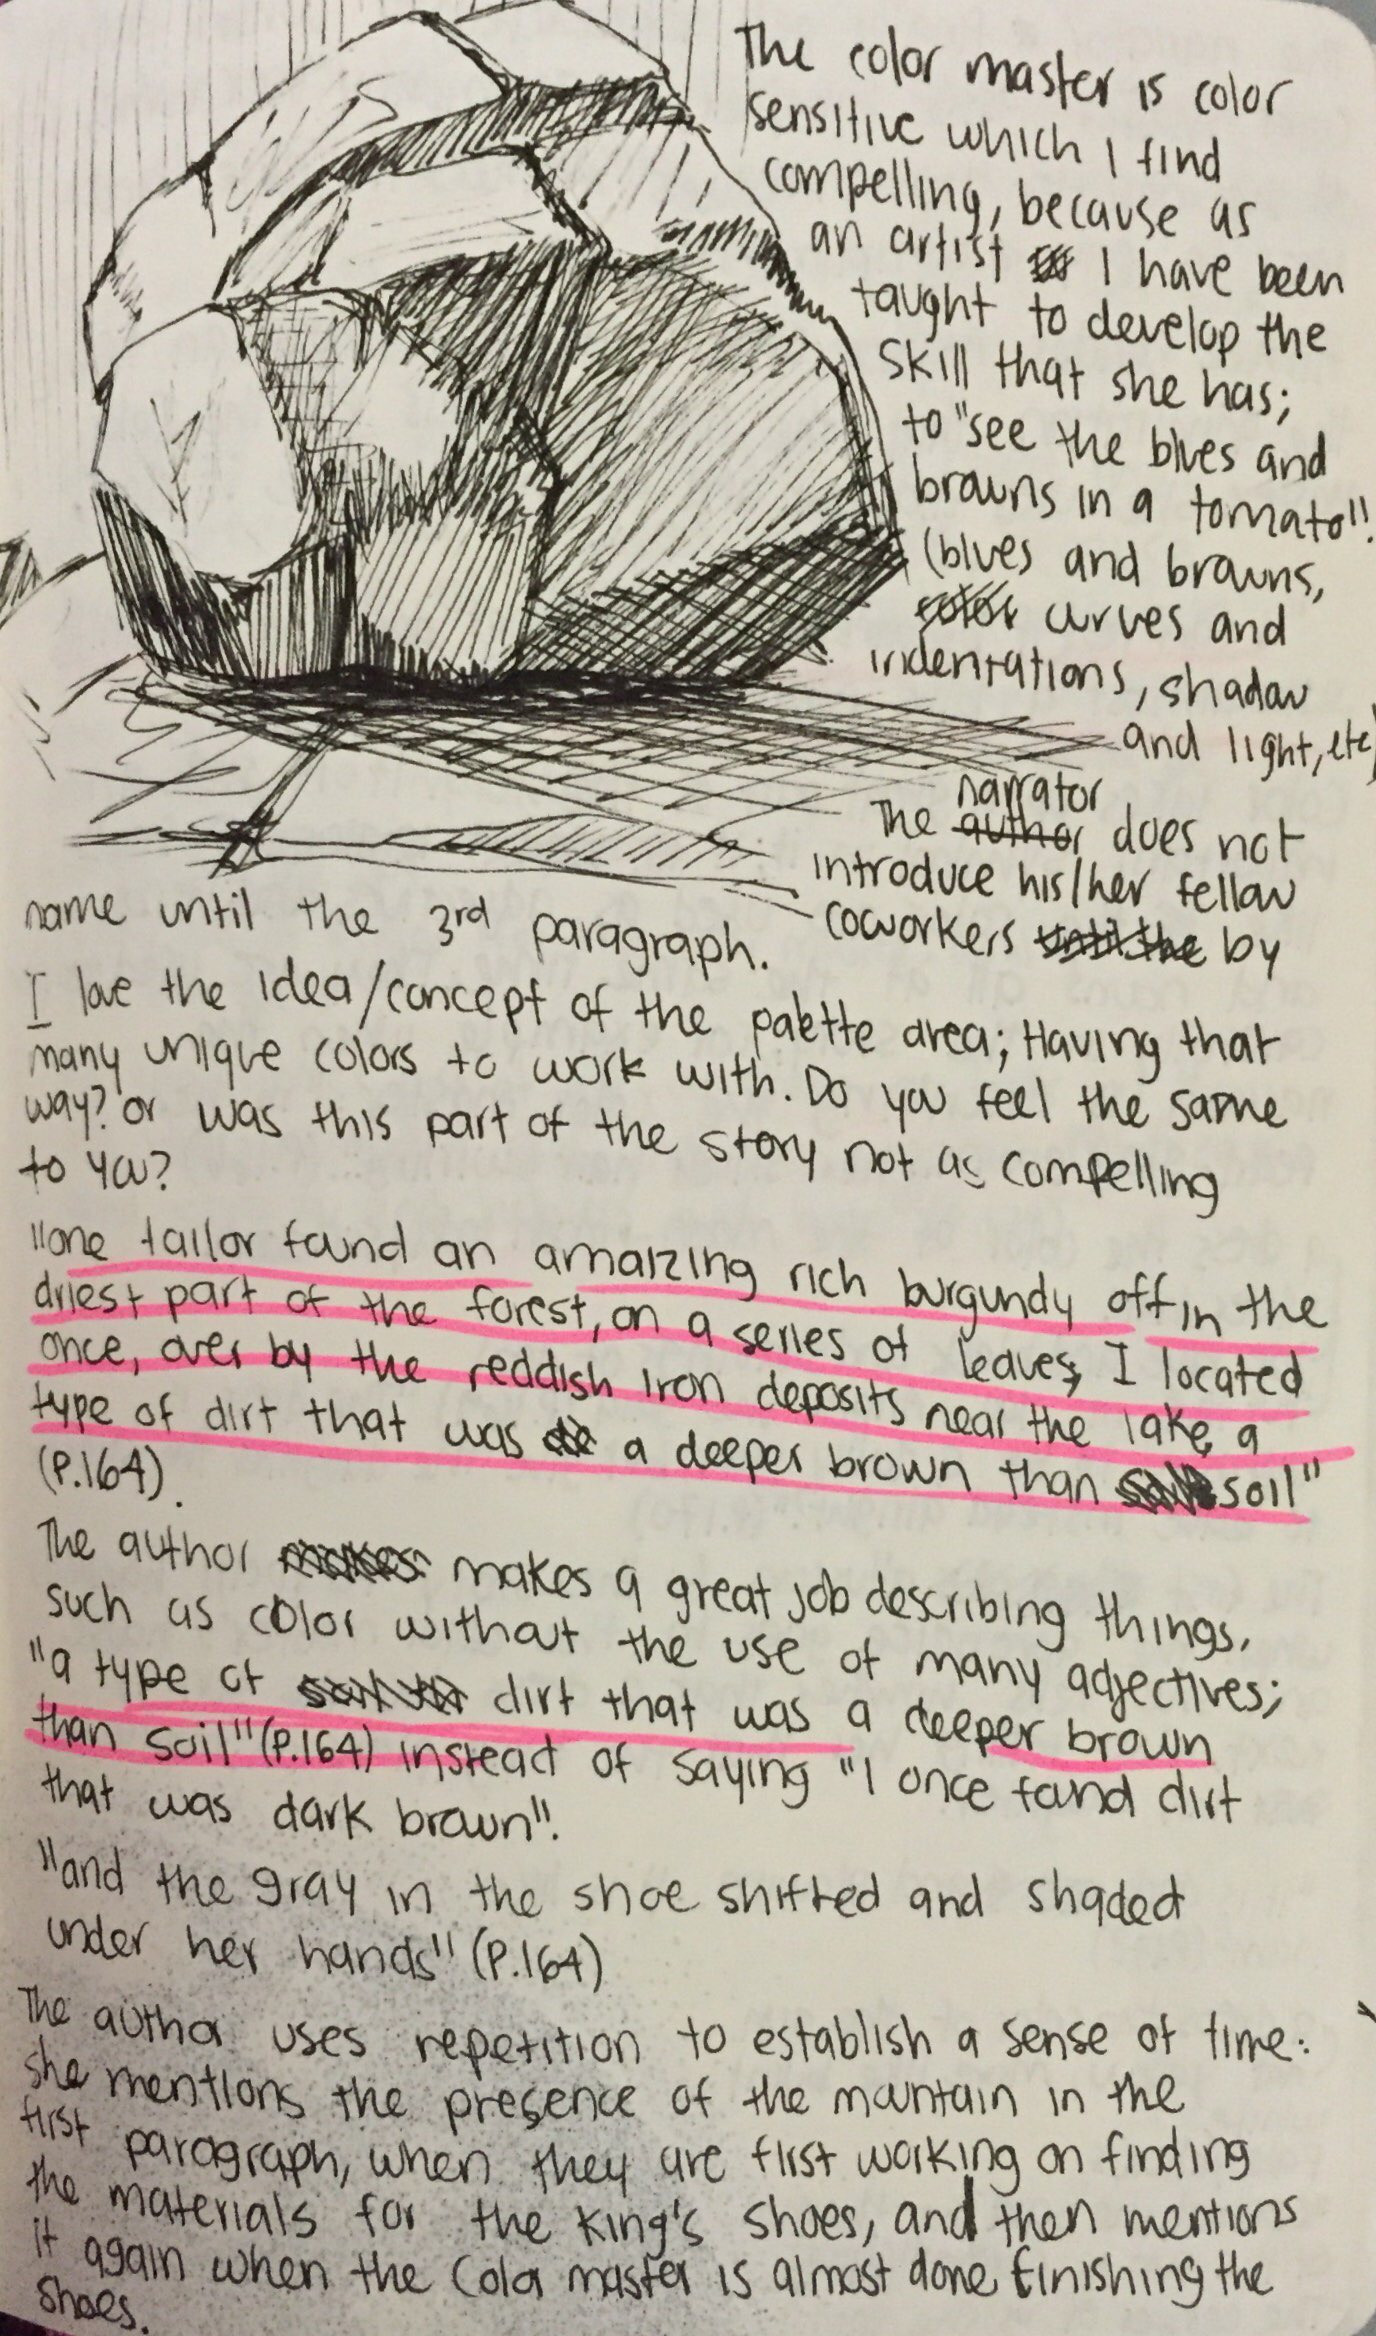 The color master is color
sensitive which I find
compelling, because as
an artist I have been
taught to develop the
skill that she has;
to "see the blues and
browns in a tomato".
(blues and browns,
color curves and
indentations, shadow
and light, etc)
narrator
The author does not
introduce his/her fellow
coworkers until the by
name until the 3rd paragraph.
I love the idea/concept of the palette area; Having that
many unique colors to work with. Do you feel the same
way? or was this part of the story not as compelling
to you?
"one tailor found an amaizing rich burgundy off in the
driest part of the forest, on a series of leaves, I located
once, over by the reddish iron deposits near the lake, a
type of dirt that was a deeper brown than soil"
(P.164).
The author makes makes a great job describing things,
such as color without the use of many adjectives;
"a type of dirt that was a deeper brown
than soil" (P.164) instead of saying "I once found dirt
that was dark brown".
"and the gray in the shoe shifted and shaded
under her hands" (P.164)
The author uses repetition to establish a sense of time:
she mentions the presence of the mountain in the
first paragraph, when they are first working on finding
the materials for the king's shoes, and then mentions
it again when the Color master is almost done finishing the
shoes.